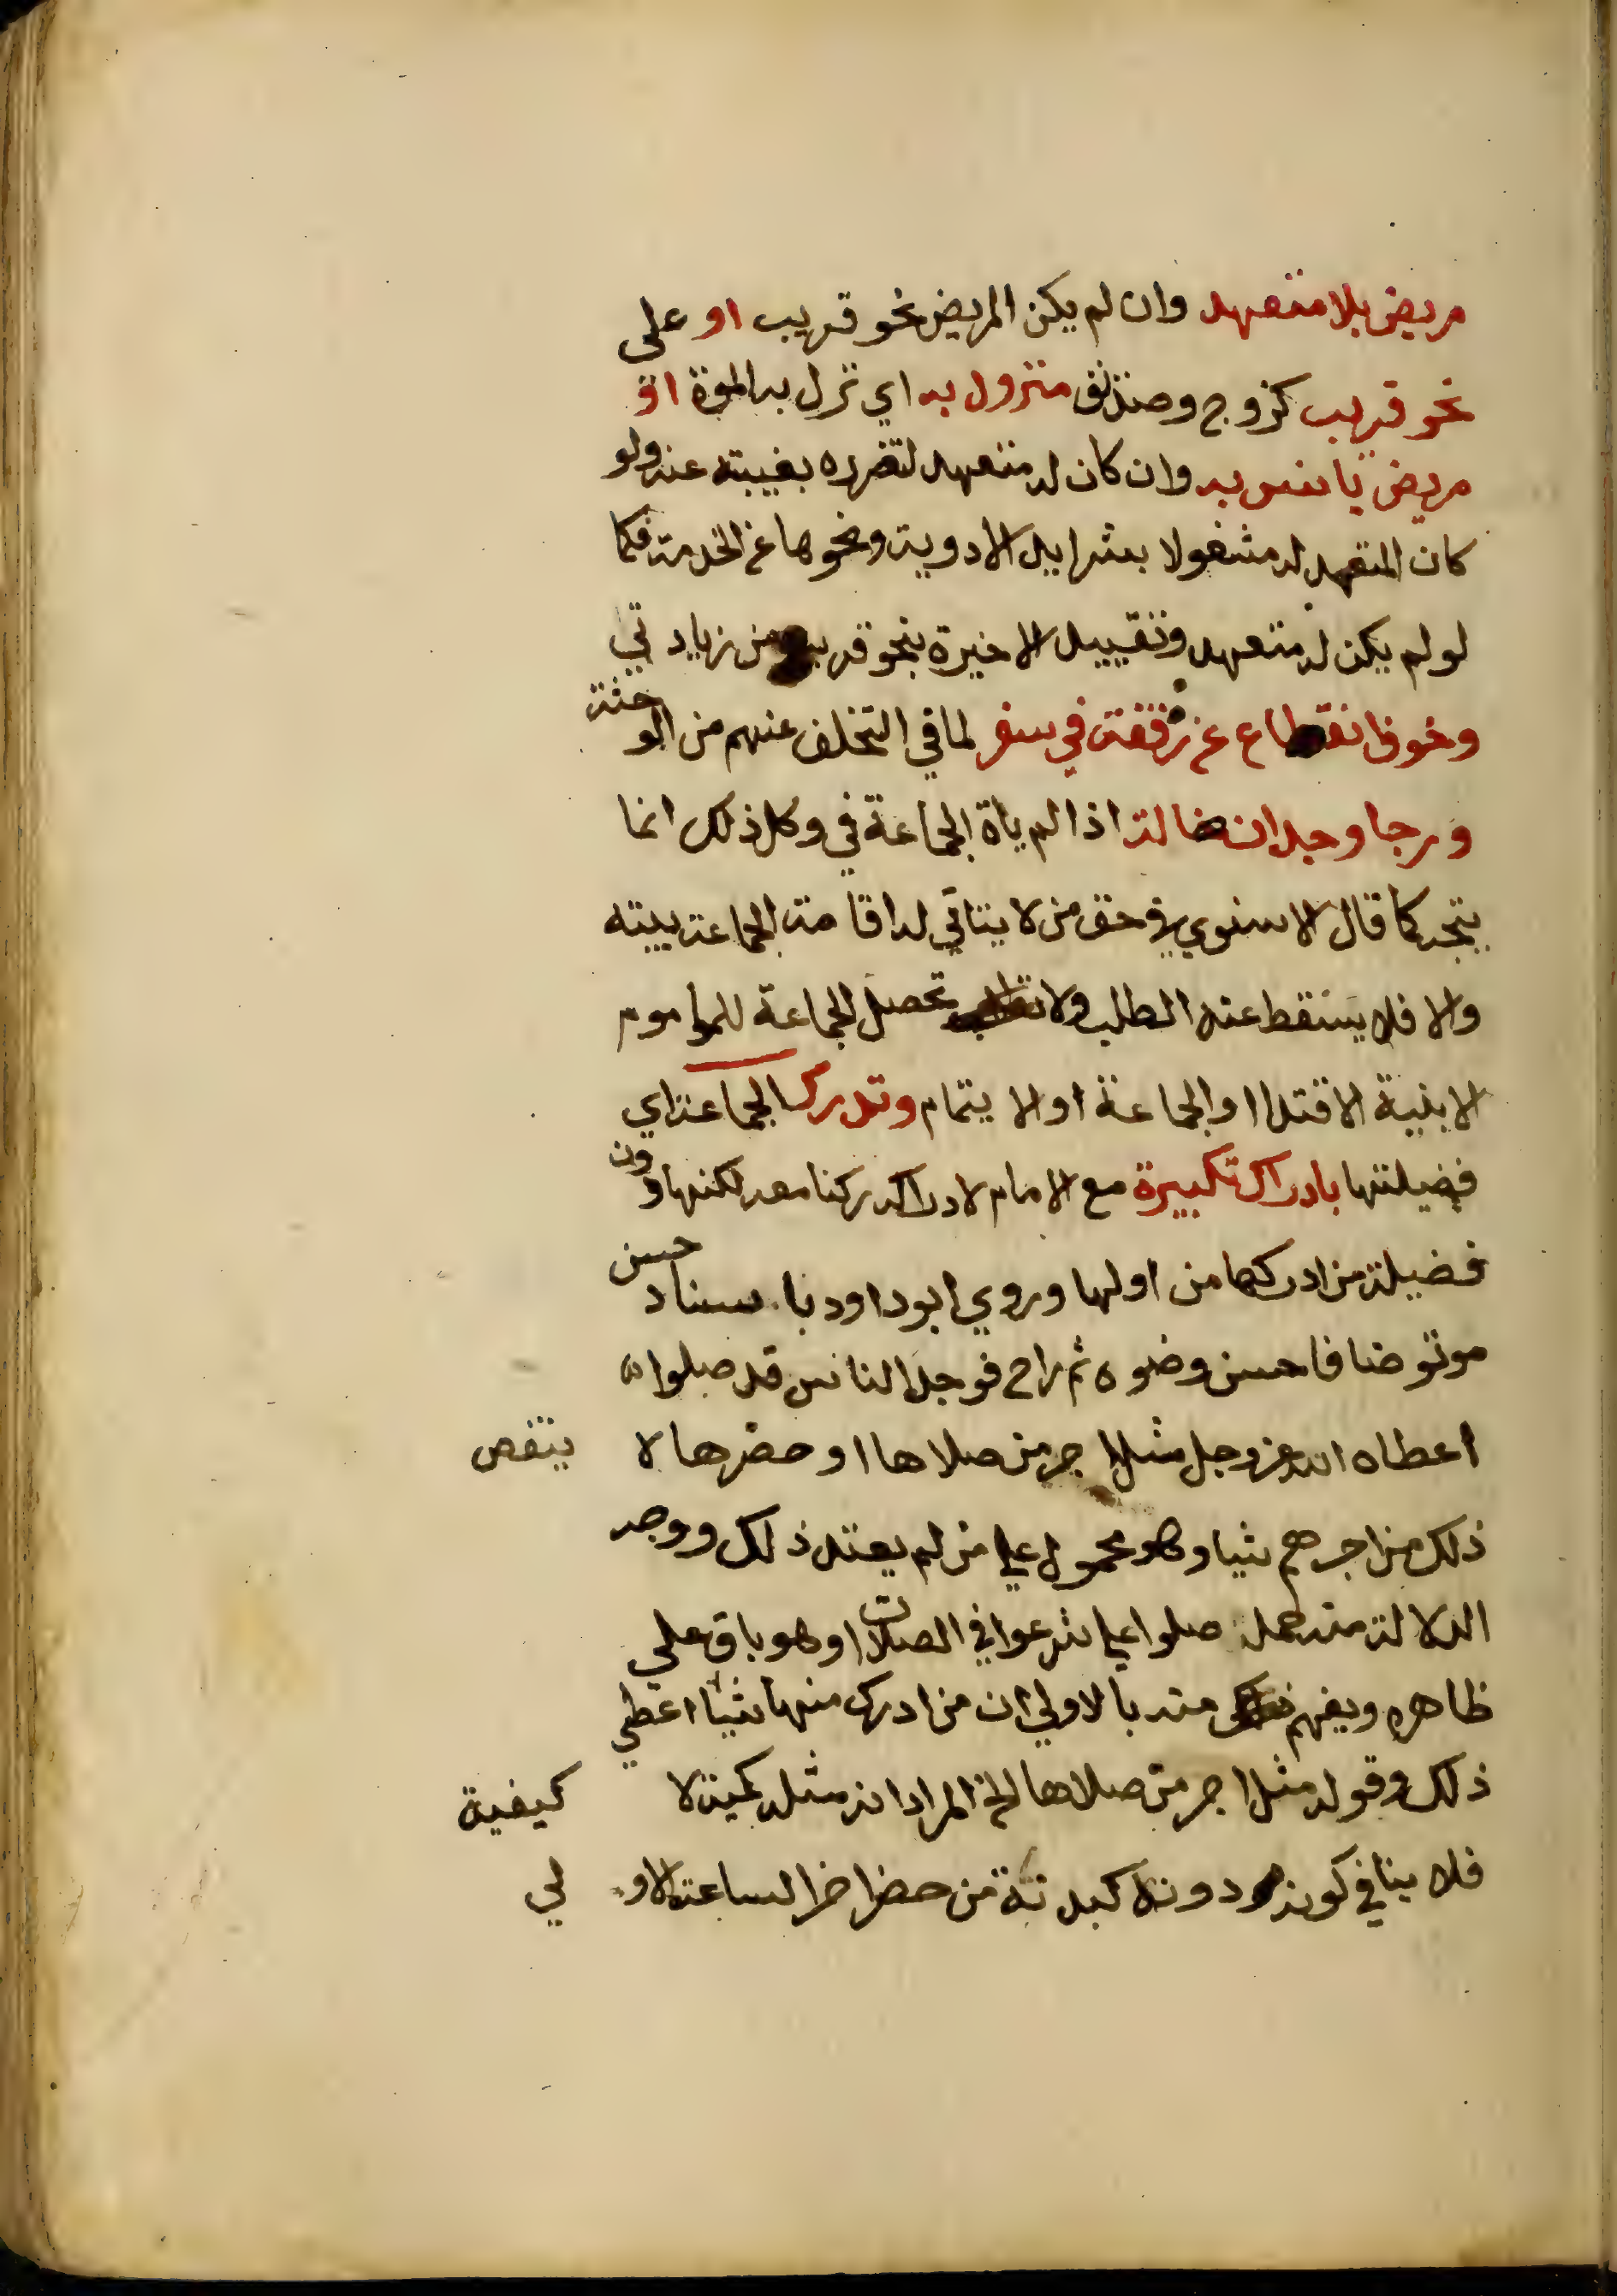 مريض بلا متعهد وان لم يكن المريض نحو قريب او على
نحو قريب كزوج وصديق منزول به اي نزل به الموة او
مريض يانس به وان كان له متعهد لتضرره بغيبته عنه ولو
كان المتعهد له مشغولا بشرا بيل الادوية ونحوها عن الخدمة فكما
لو لم يكن له متعهد وتقييد الاخيرة بنحو قريب من زيادتي
وخوف انقطاع عن رفقة في سفر لما في التخلف عنهم من الوحثة
ورجا وجدان ضالة اذا لم ياة الجماعة في وكل ذلك انما
يتجه كما قال الاسنوي في حق من لا يتاتي له اقامة الجماعة ببيته
والا فلا يسقط عنه الطلب ولا تحصل الجماعة للماموم
الا بنية الاقتدا او الجماعة او الايتمام وتدرك الجماعة اي
فضيلتها بادراك تكبيرة مع الامام لادراكه ركنا معه لكنها دون
فضيلة من ادركها من اولها وروي ابو داود باسناد حسن
من توضا فاحسن وضوه ثم راح فوجد الناس قد صلوا
اعطاه الله عز وجل مثل اجر من صلاها او حضرها لا ينقص
ذلك من اجرهم شيا وهو محمول علي من لم يعتد ذلك ووجه
الدلالة منه حمل صلوا علي شرعوا في الصلات او هو باق علي
ظاهره ويفهم منه بالاولي ان من ادرك منها شيا اعطي
ذلك وقوله مثل اجر من صلاها الخ المراد انه مثله كمية لا كيفية
فلا ينافي كونه دونه كبدنة من حضر اخر الساعة الاولي